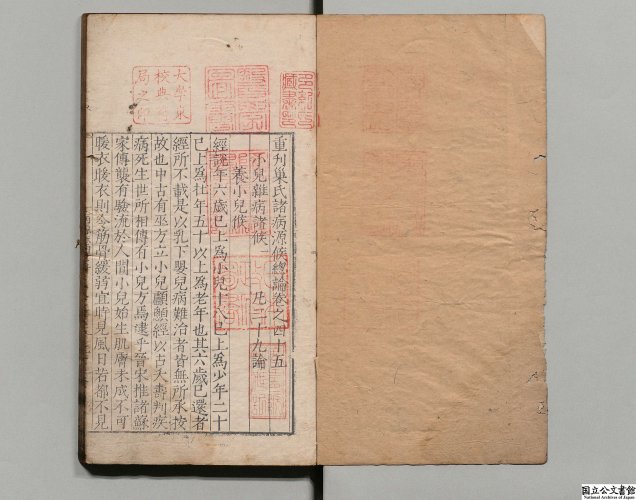 重刊巢氏諸病源候總論卷之四十五
小兒雜病諸候一 凡二十九論
養小兒候
經說年六歲已上爲小兒十八已上爲少年二十
已上爲壯年五十以上爲老年也其六歲已還者
經所不載是以乳下嬰兒病難治者皆無所承按
故也中古有巫方立小兒顱顖經以占夭壽判疾
病死生世所相傳有小兒方焉逮乎晉宋推諸蘇
家傳襲有驗流於人間小兒始生肌膚未成不可
暖衣暖衣則令筋骨緩弱宜時見風日若都不見
大學東
校典
局之印
国立公文書館
National Archives of Japan